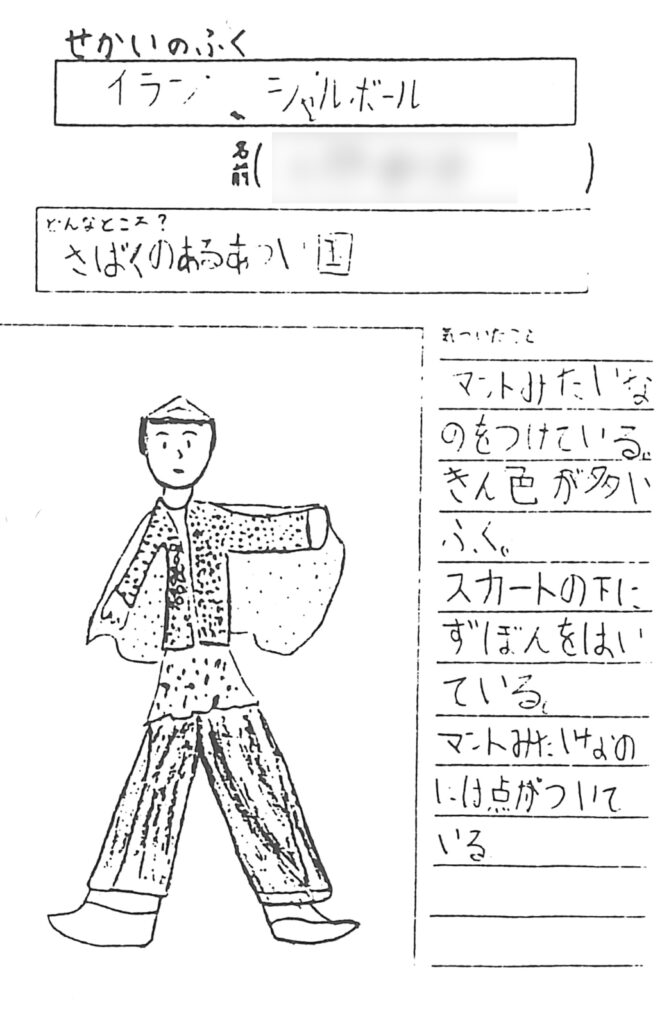 せかいのふく
イラン、シャルボール
名前( )
どんなところ?
さばくのあるあつい国
気づいたこと
マントみたいな
のをつけている。
きん色が多い
ふく。
スカートの下に
ずぼんをはい
ている。
マントみたいなの
には点がついて
いる